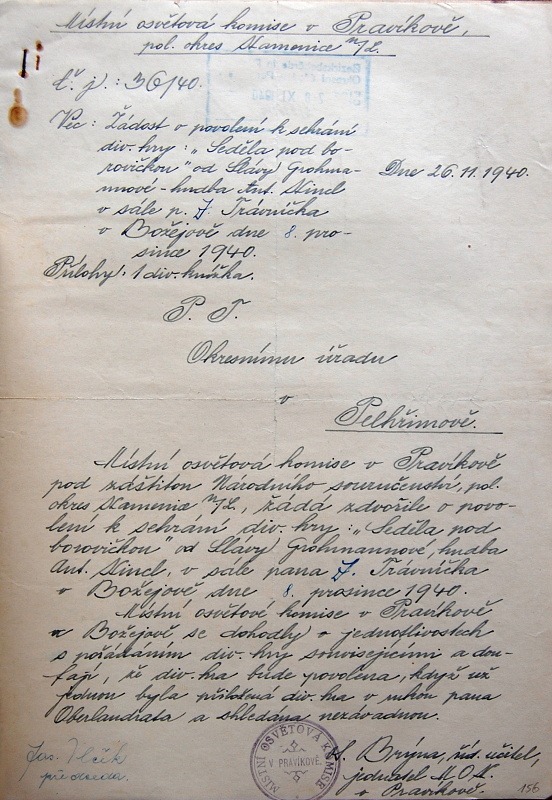 Místní osvětová komise v Pravíkově,
pol. okres Kamenice n/L.
č. j.: 36/40.
Věc: Žádost o povolení k sehrání
div. hry: „Seděla pod bo-
rovičkou" od Slávy Grohma-
nnové - hudba Ant. Kincl
v sále p. J. Trávníčka
v Božejově dne 8. pro-
since 1940.
Dne 26.11.1940.
Přílohy: 1 div. knížka.
P. T.
Okresnímu úřadu
v
Pelhřimově.
Místní osvětová komise v Pravíkově
pod záštitou Národního souručenství, pol.
okres Kamenice n/L., žádá zdvořile o povo-
lení k sehrání div. hry: „Seděla pod
borovičkou" od Slávy Grohmannové, hudba
Ant. Kincl, v sále pana J. Trávníčka
v Božejově dne 8. prosince 1940.
Místní osvětové komise v Pravíkově
a Božejově se dohodly o jednotlivostech
s pořádáním div. hry souvisejícími a dou-
fají, že div. hra bude povolena, když už
jednou byla přiložená div. hra v rukou pana
Oberlandrata a shledána nezávadnou.
Jos. Vlčik
předseda.
MÍSTNÍ OSVĚTOVÁ KOMISE
V PRAVÍKOVĚ.
Brýna, říd. učitel,
jednatel M.O.K.
v Pravíkově.
156